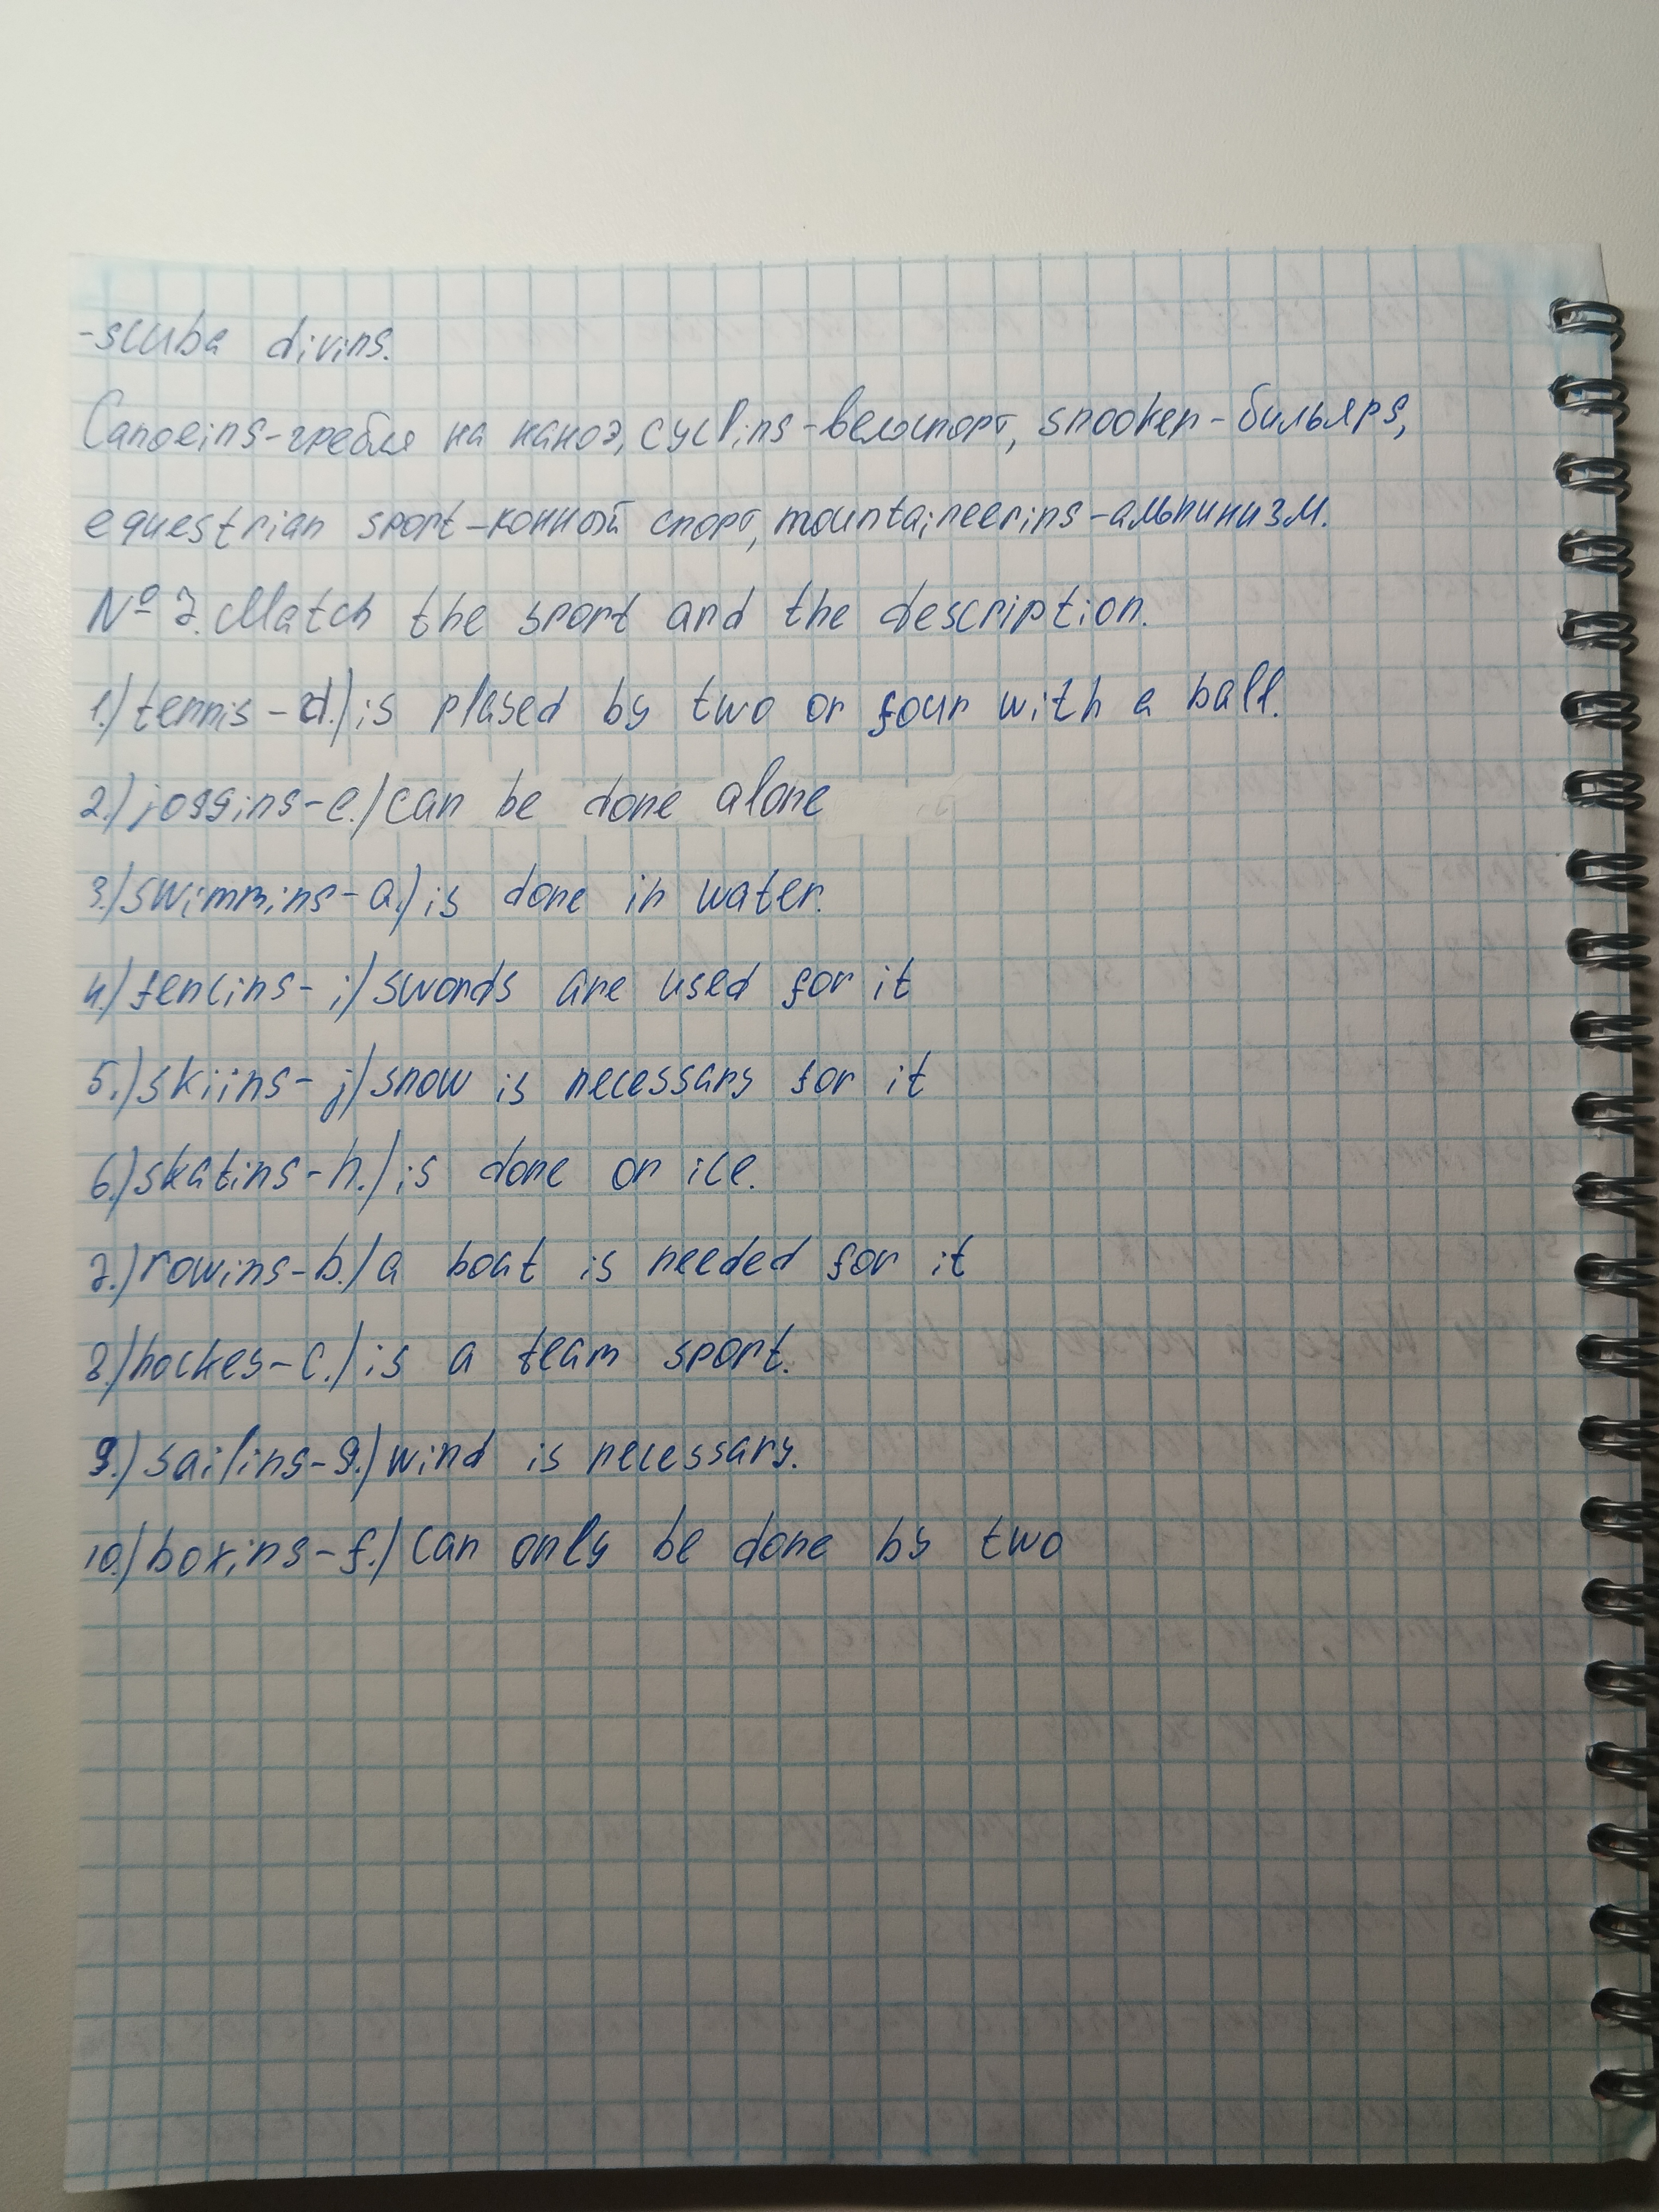 -scuba diving.
Canoeing-гребля на каноэ, cycling-велоспорт, snooker-бильярд,
equestrian sport-конный спорт, mountaineering-альпинизм.
№ 7. Match the sport and the description.
1.) tennis-d.) is played by two or four with a ball.
2.) jogging-e.) can be done alone
3.) swimming-a.) is done in water.
4.) fencing-i) swords are used for it
5.) skiing-j) snow is necessary for it
6.) skating-h.) is done on ice.
7.) rowing-b.) a boat is needed for it
8.) hockey-c.) is a team sport.
9.) sailing-g.) wind is necessary.
10.) boxing-f.) can only be done by two